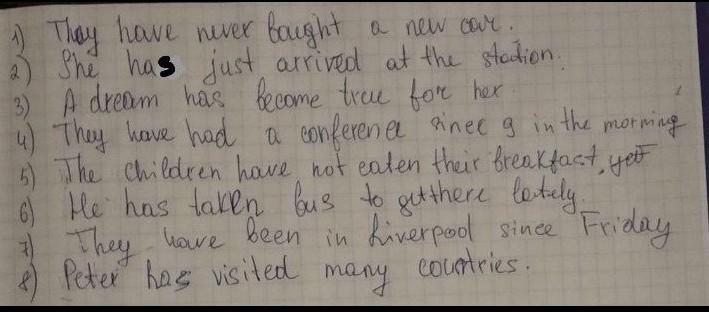 1) They have never bought a new car.
2) She has just arrived at the station.
3) A dream has become true for her
4) They have had a conference since 9 in the morning
5) The children have not eaten their breakfast, yet
6) He has taken bus to get there lately.
7) They have been in Liverpool since Friday
8) Peter has visited many countries.